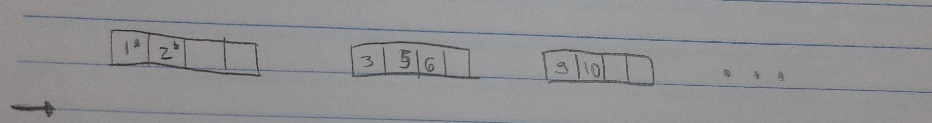 1* 2* 3 5 6 9 10 . . .